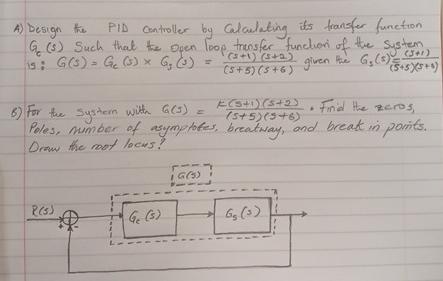 A) Design the PID Controller by Calculating its transfer function
Gc(s) Such that the open loop transfer function of the System
is: G(s) = Gc(s) × Gs(s) = (s+1)(s+2) / (s+5)(s+6) given the Gs(s) = (s+1) / (s+5)(s+6)
B) For the System with G(s) = K(s+1)(s+2) / (s+5)(s+6). Find the zeros,
Poles, number of asymptotes, breatway, and break in points.
Draw the root locus?
G(s)
R(s)
+
-
Gc(s)
Gs(s)